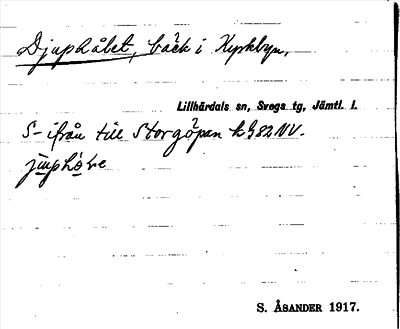 Djuphålet, bäck i Kyrkbyn,
Lillhärdals sn, Svegs tg, Jämtl. l.
S-ifrån till Storgöpen k b 82 NV.
juphɷ́ḷe
S. ÅSANDER 1917.